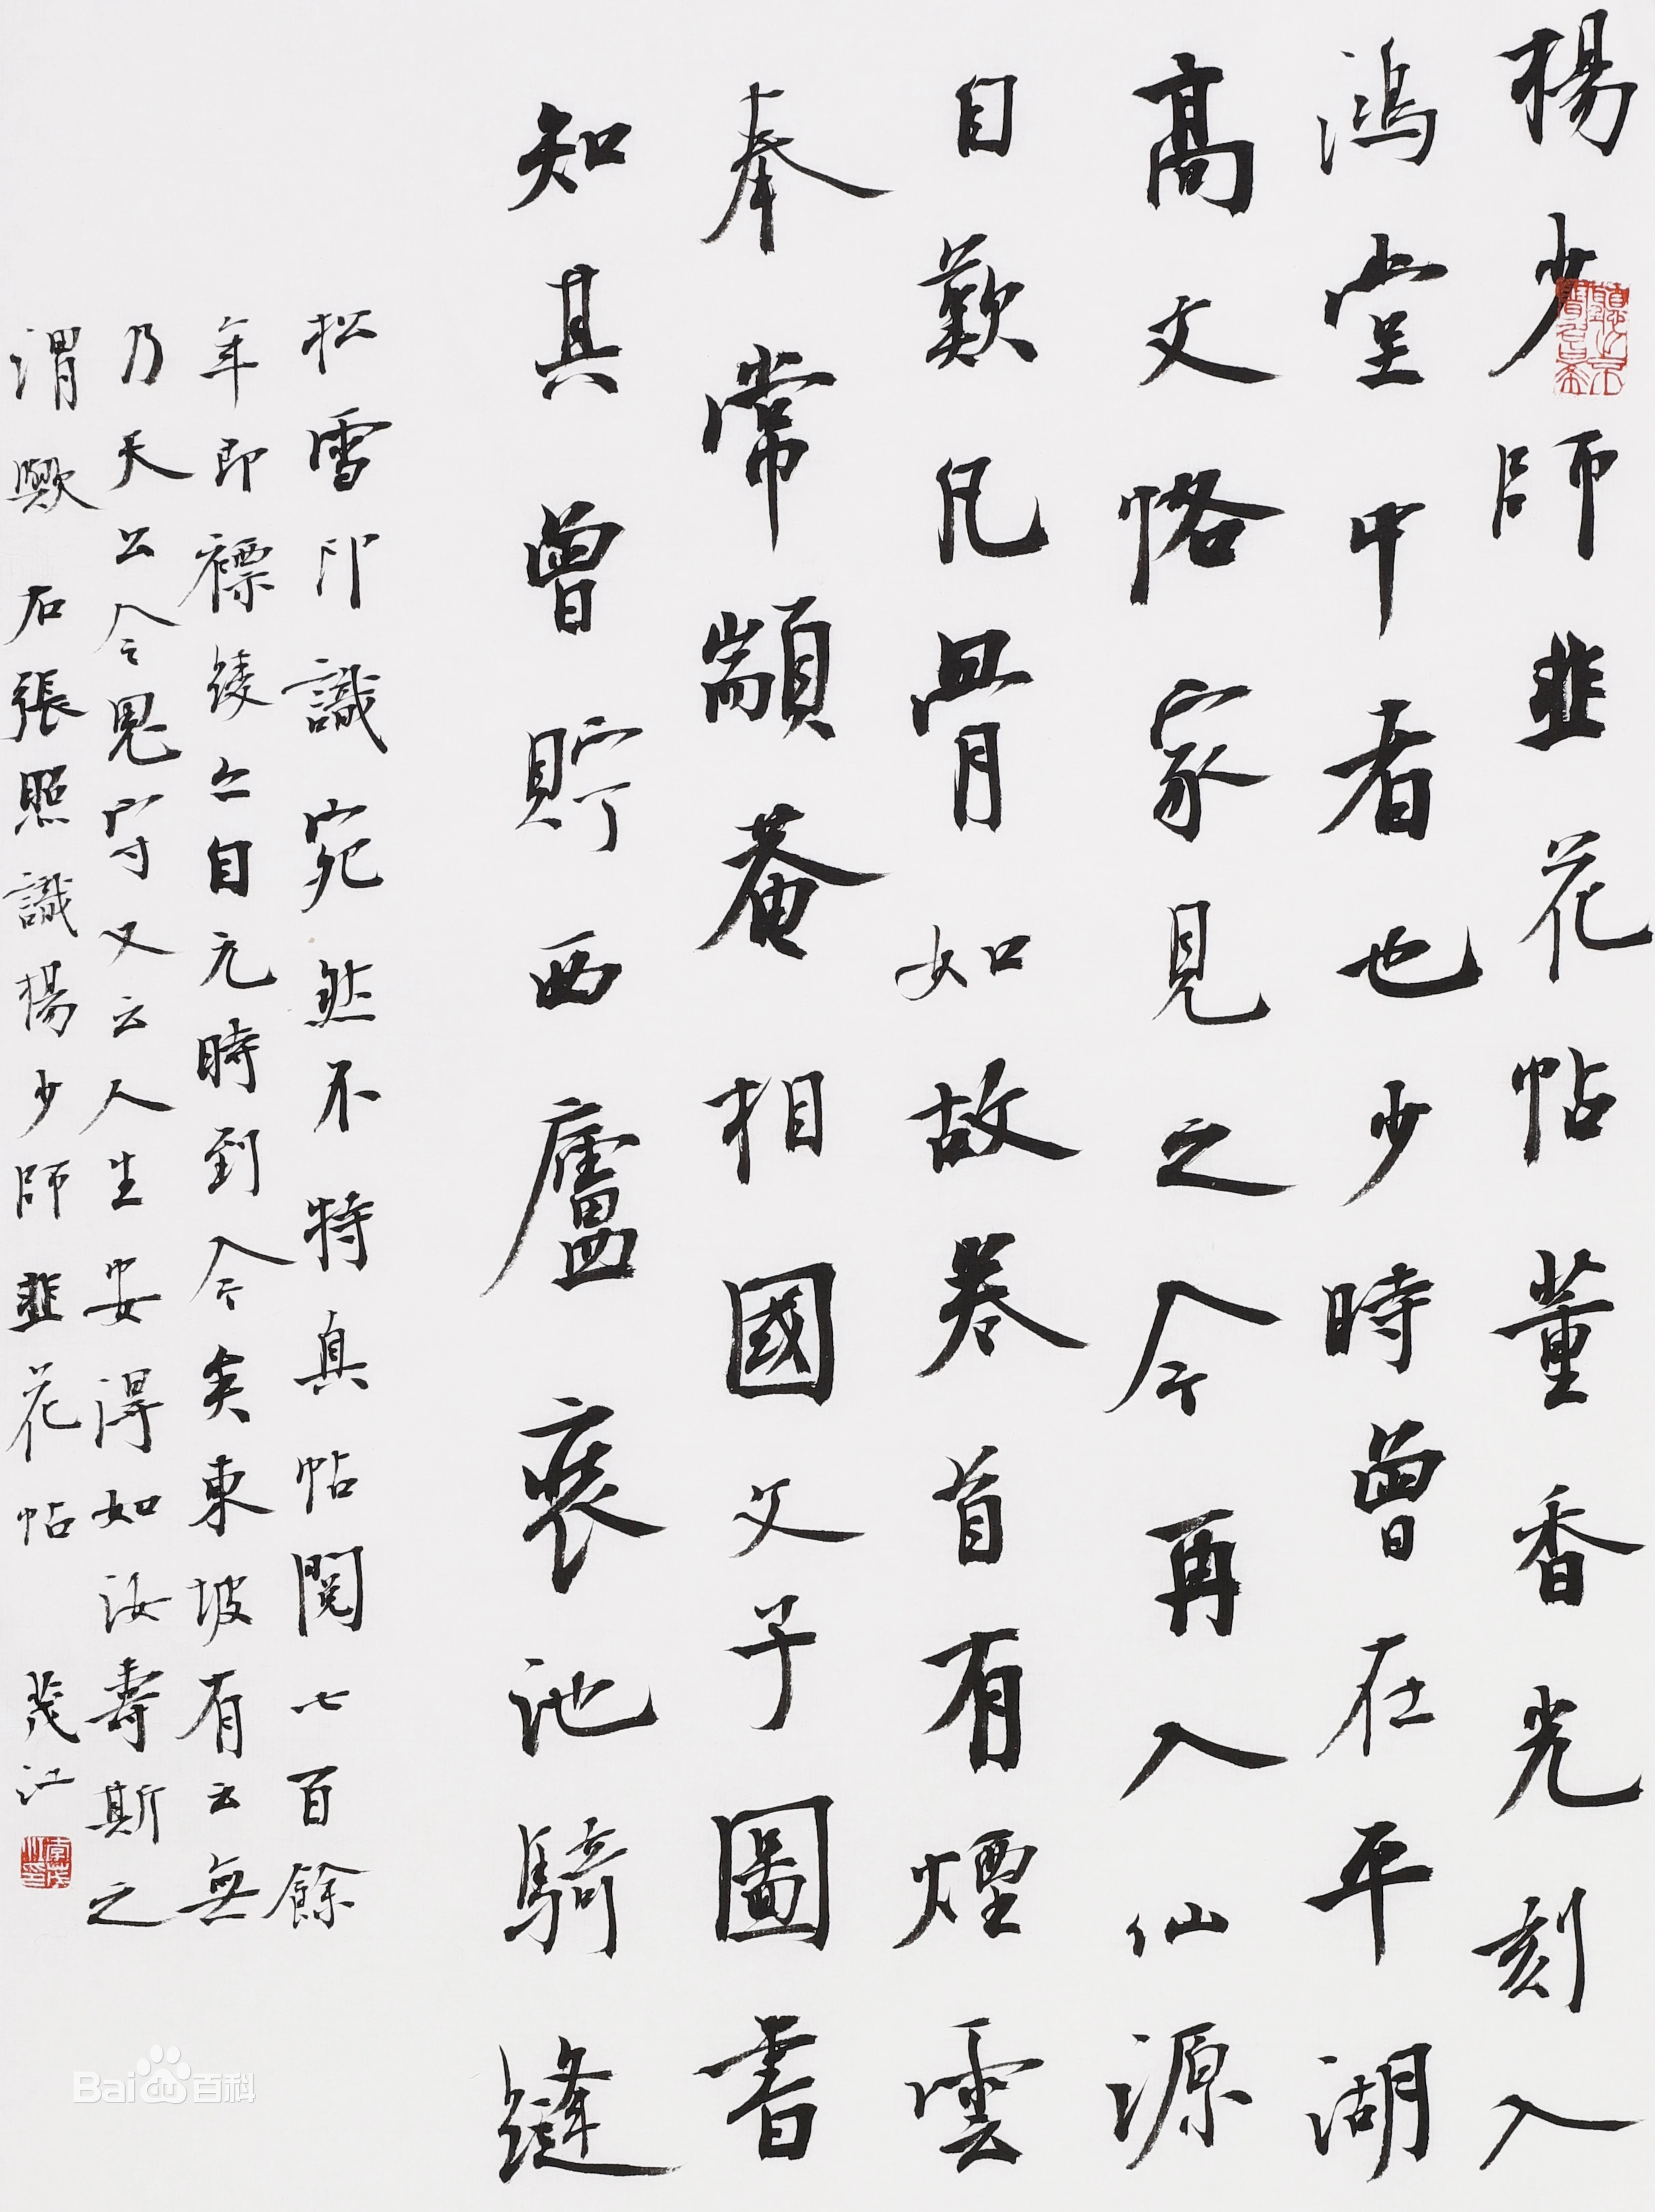 楊少師韭花帖董香光刻入
鴻堂中者也少時曾在平湖
高文恪家見之今再入仙源
自歎凡骨如故卷首有煙雲
奉常顓菴相國父子圖書
知其曾貯西廬裘池騎縫
松雪印識宛然不特真帖閱七百餘
年即褾綾亦自元時到今矣東坡有云無
乃天公令鬼守又云人生安得如汝壽斯之
謂歟 石張照識楊少師韭花帖 茂江
Bai 百科